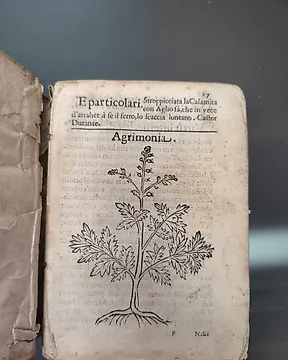 17
E particolari, Stroppicciata la Calamita
con Aglio fà, che in vece
d'attraher à se il ferro, lo scaccia lontano. Castor
Durante.
Agrimonia.
B